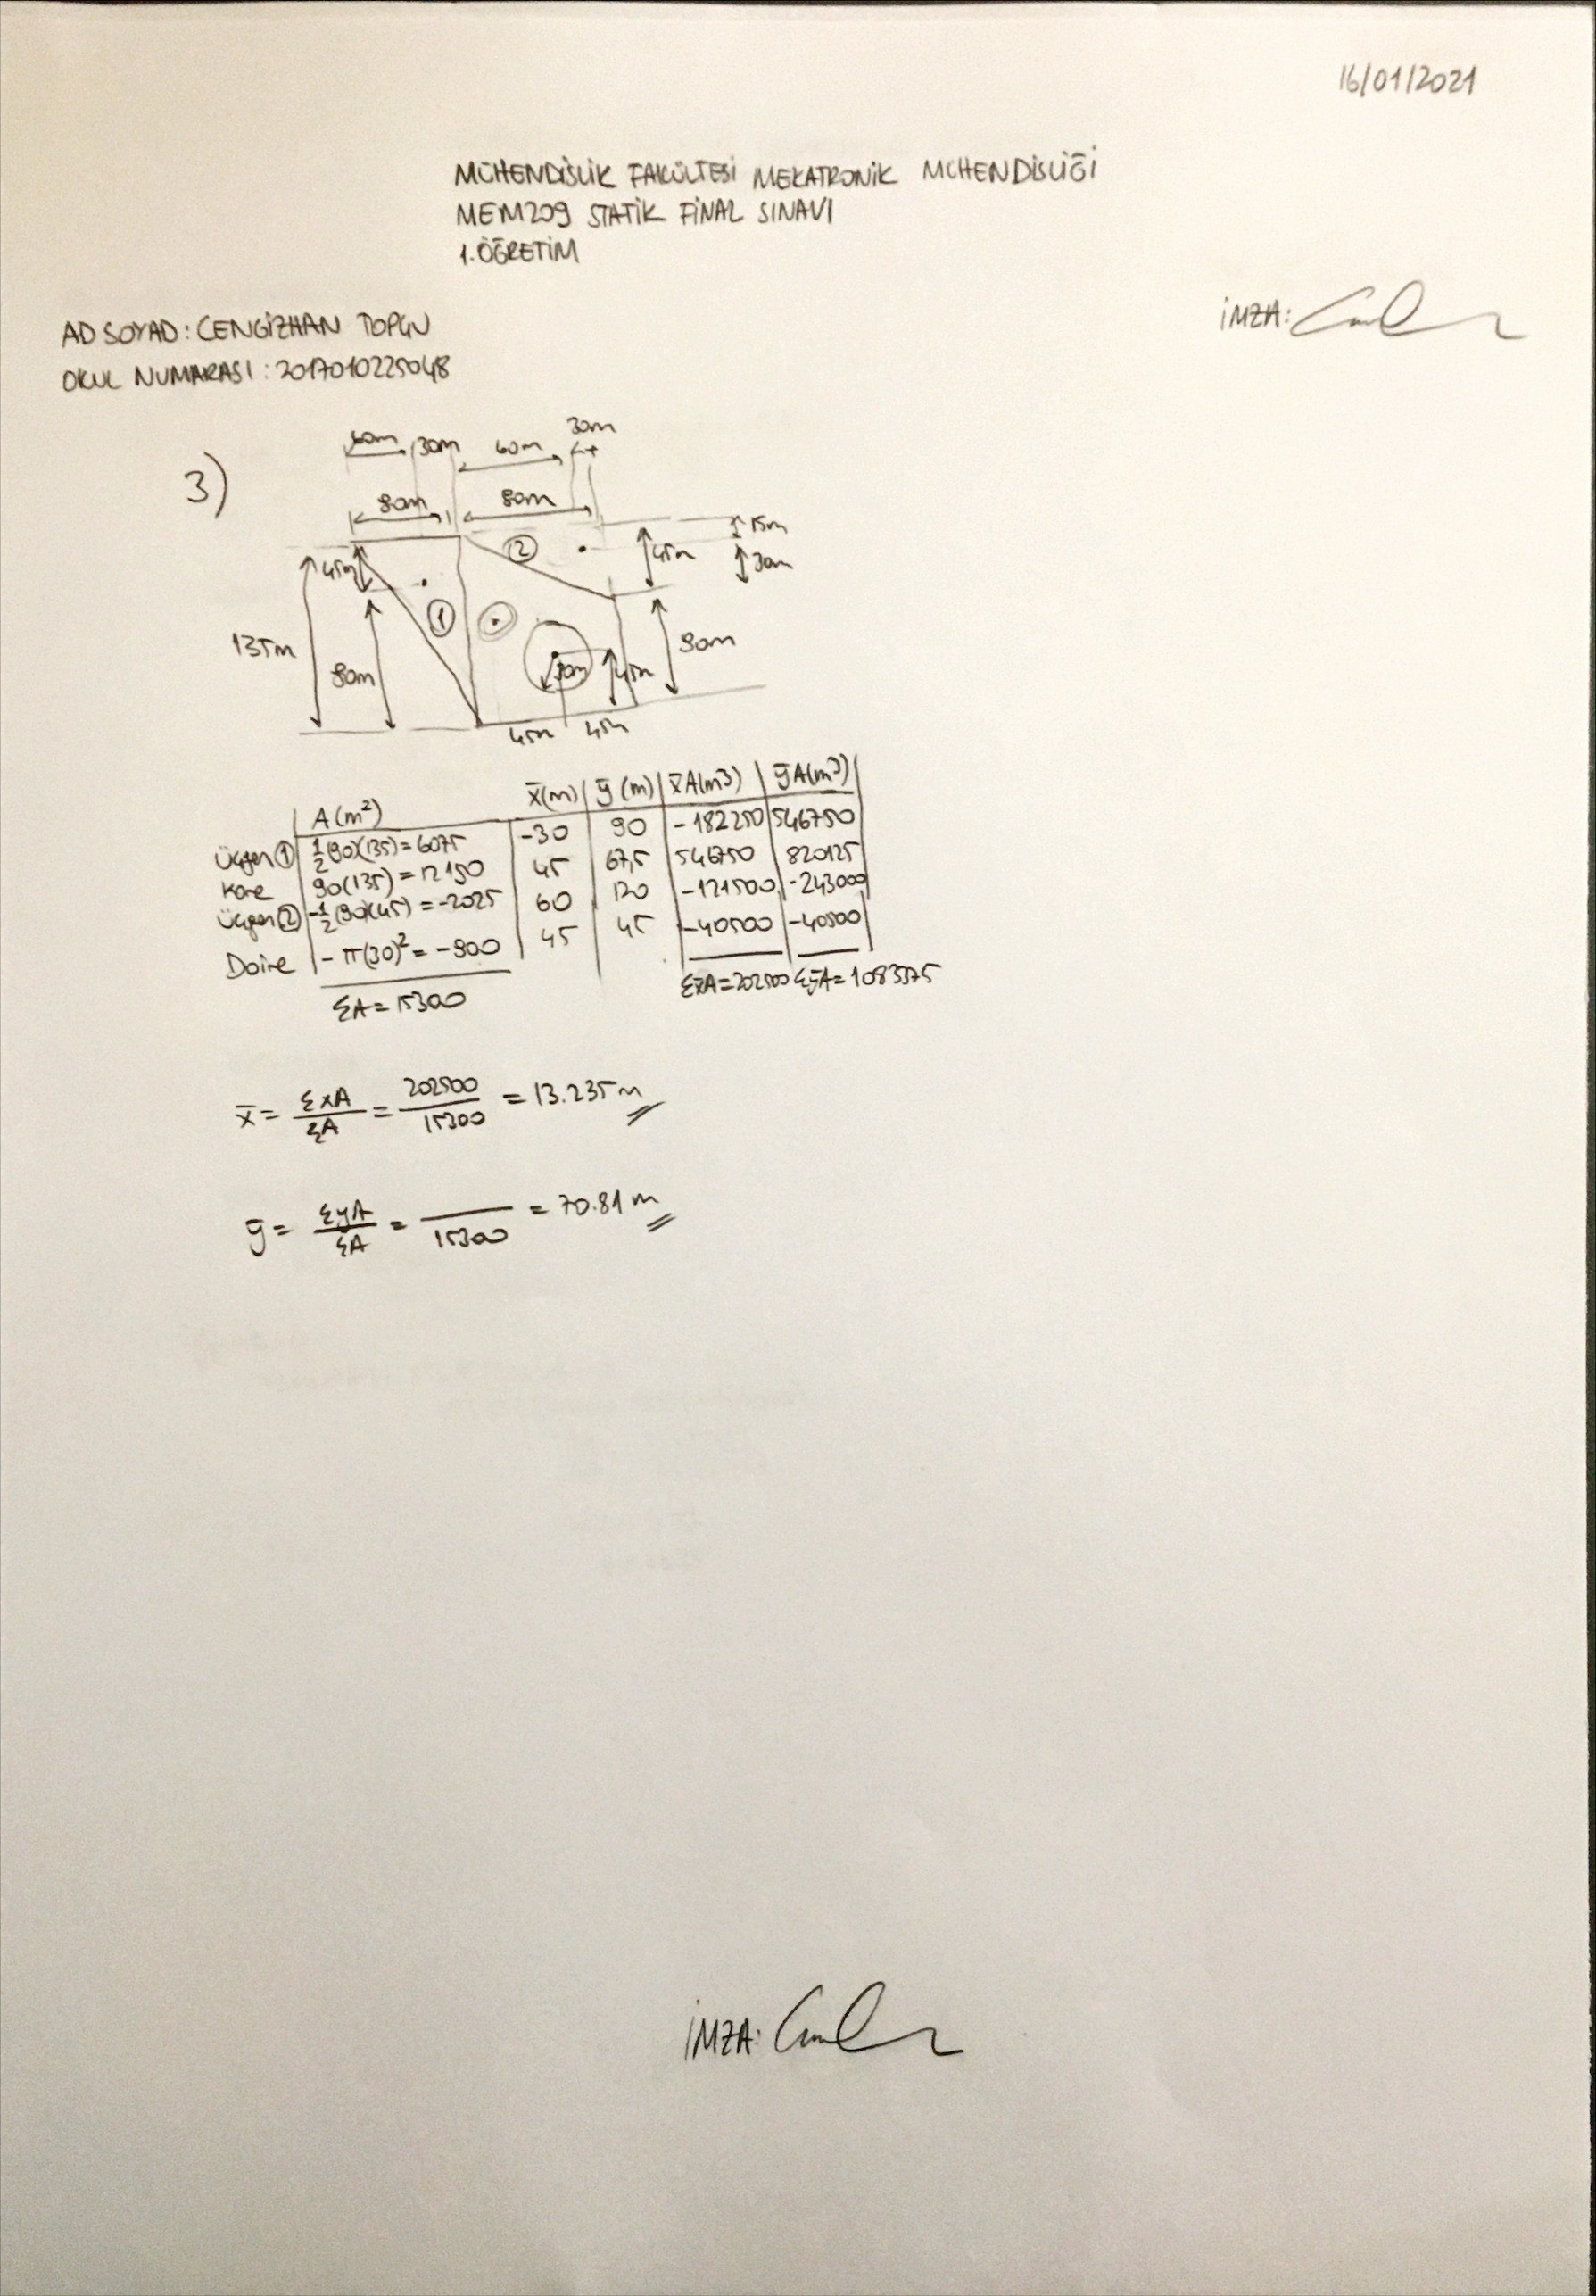 16/01/2021
MÜHENDİSLİK FAKÜLTESİ MEKATRONİK MÜHENDİSLİĞİ
MEM209 STATİK FİNAL SINAVI
1.ÖĞRETİM
İMZA:
AD SOYAD: CENGİZHAN TOPÇU
OKUL NUMARASI: 2017010225048
3)
60m 30m 60m 30m
90m 90m
15m
② 45m 30m
45m
①
135m 90m 90m
30m 45m
45m 45m
A(m²) x̄(m) ȳ(m) x̄A(m³) ȳA(m³)
Üçgen① ½(90)(135)=6075 -30 90 -182250 546750
Kare 90(135)=12150 45 67,5 546750 820125
Üçgen② -½(90)(45)=-2025 60 120 -121500 -243000
Daire -π(30)²=-900 45 45 -40500 -40500
ΣA=15300 Σx̄A=202500 ΣȳA=1083375
x̄ = ΣxA/ΣA = 202500/15300 = 13.235m
ȳ = ΣyA/ΣA = /15300 = 70.81m
İMZA: